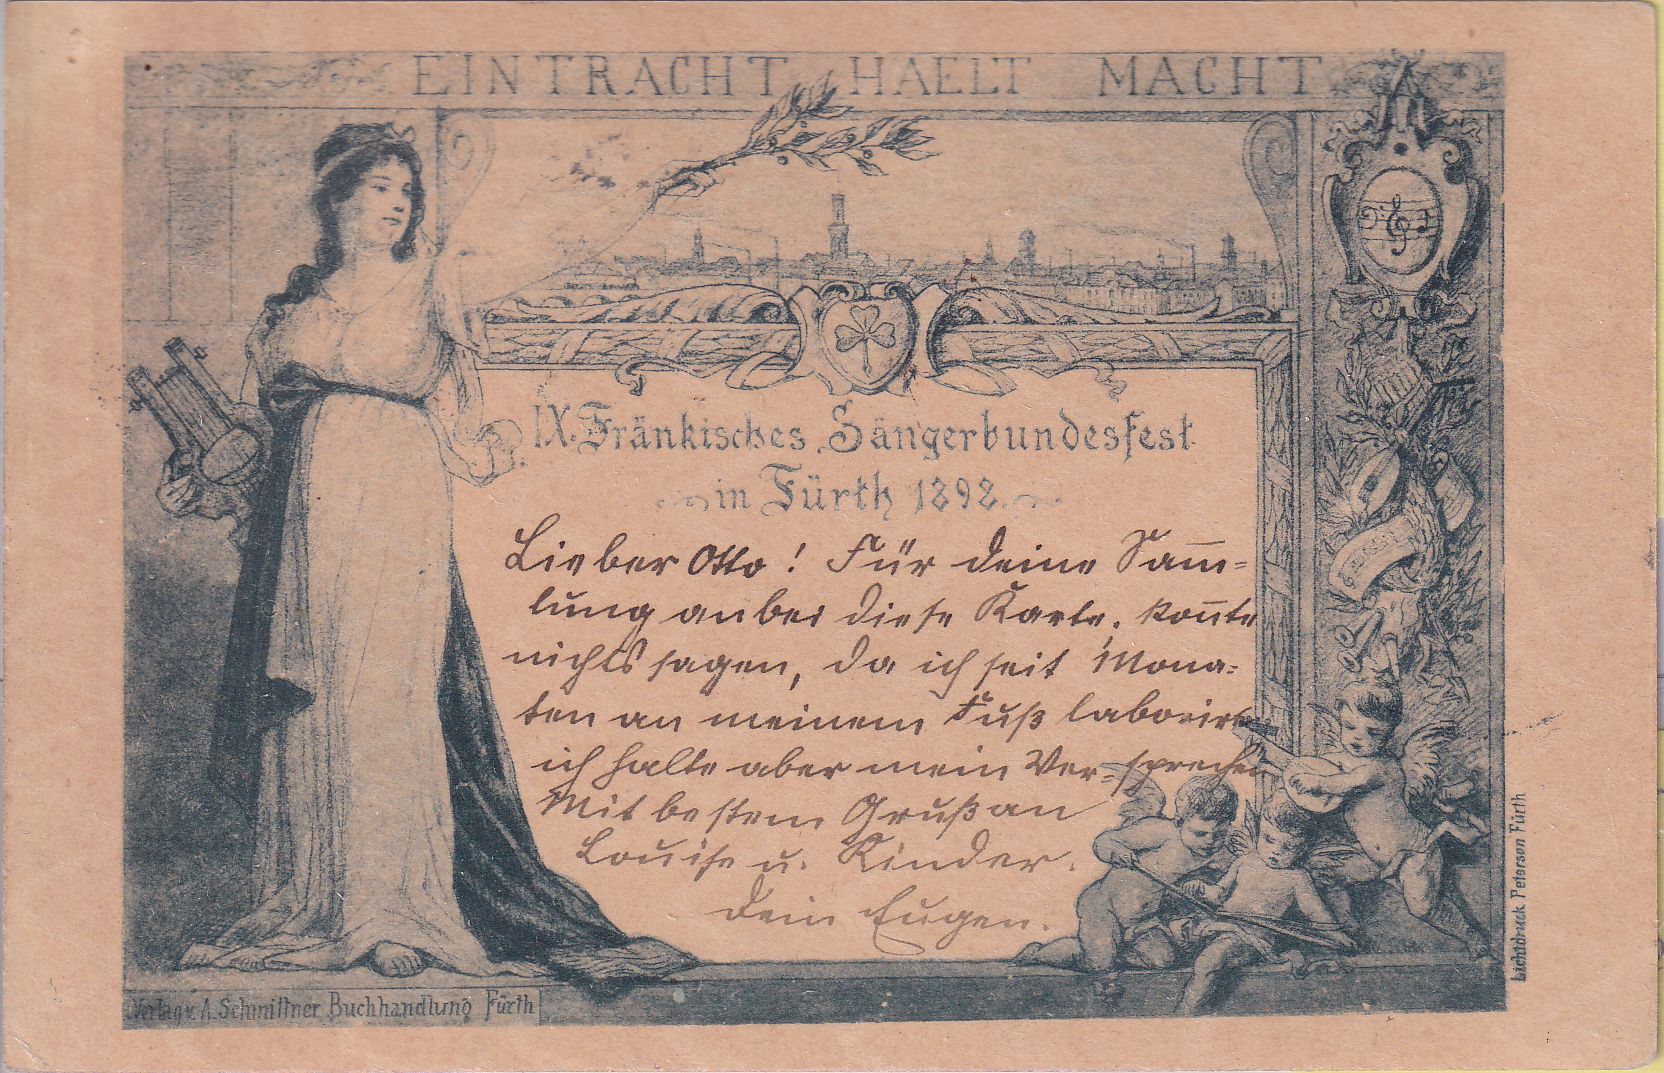 EINTRACHT HAELT MACHT
IX. Fränkisches Sängerbundesfest
in Fürth 1892.
Lieber Otto! Für deine Sam̅-
lung anbei diese Karte. Kon̅te
nichts sagen, da ich seit Mona-
ten an meinem Fuß laborirte
ich halte aber mein Ver-sprechen
Mit bestem Gruß an
Louise u. Kinder.
Dein Eugen.
Verlag v. A. Schmittner Buchhandlung Fürth
Lichtdruck Peterson Fürth